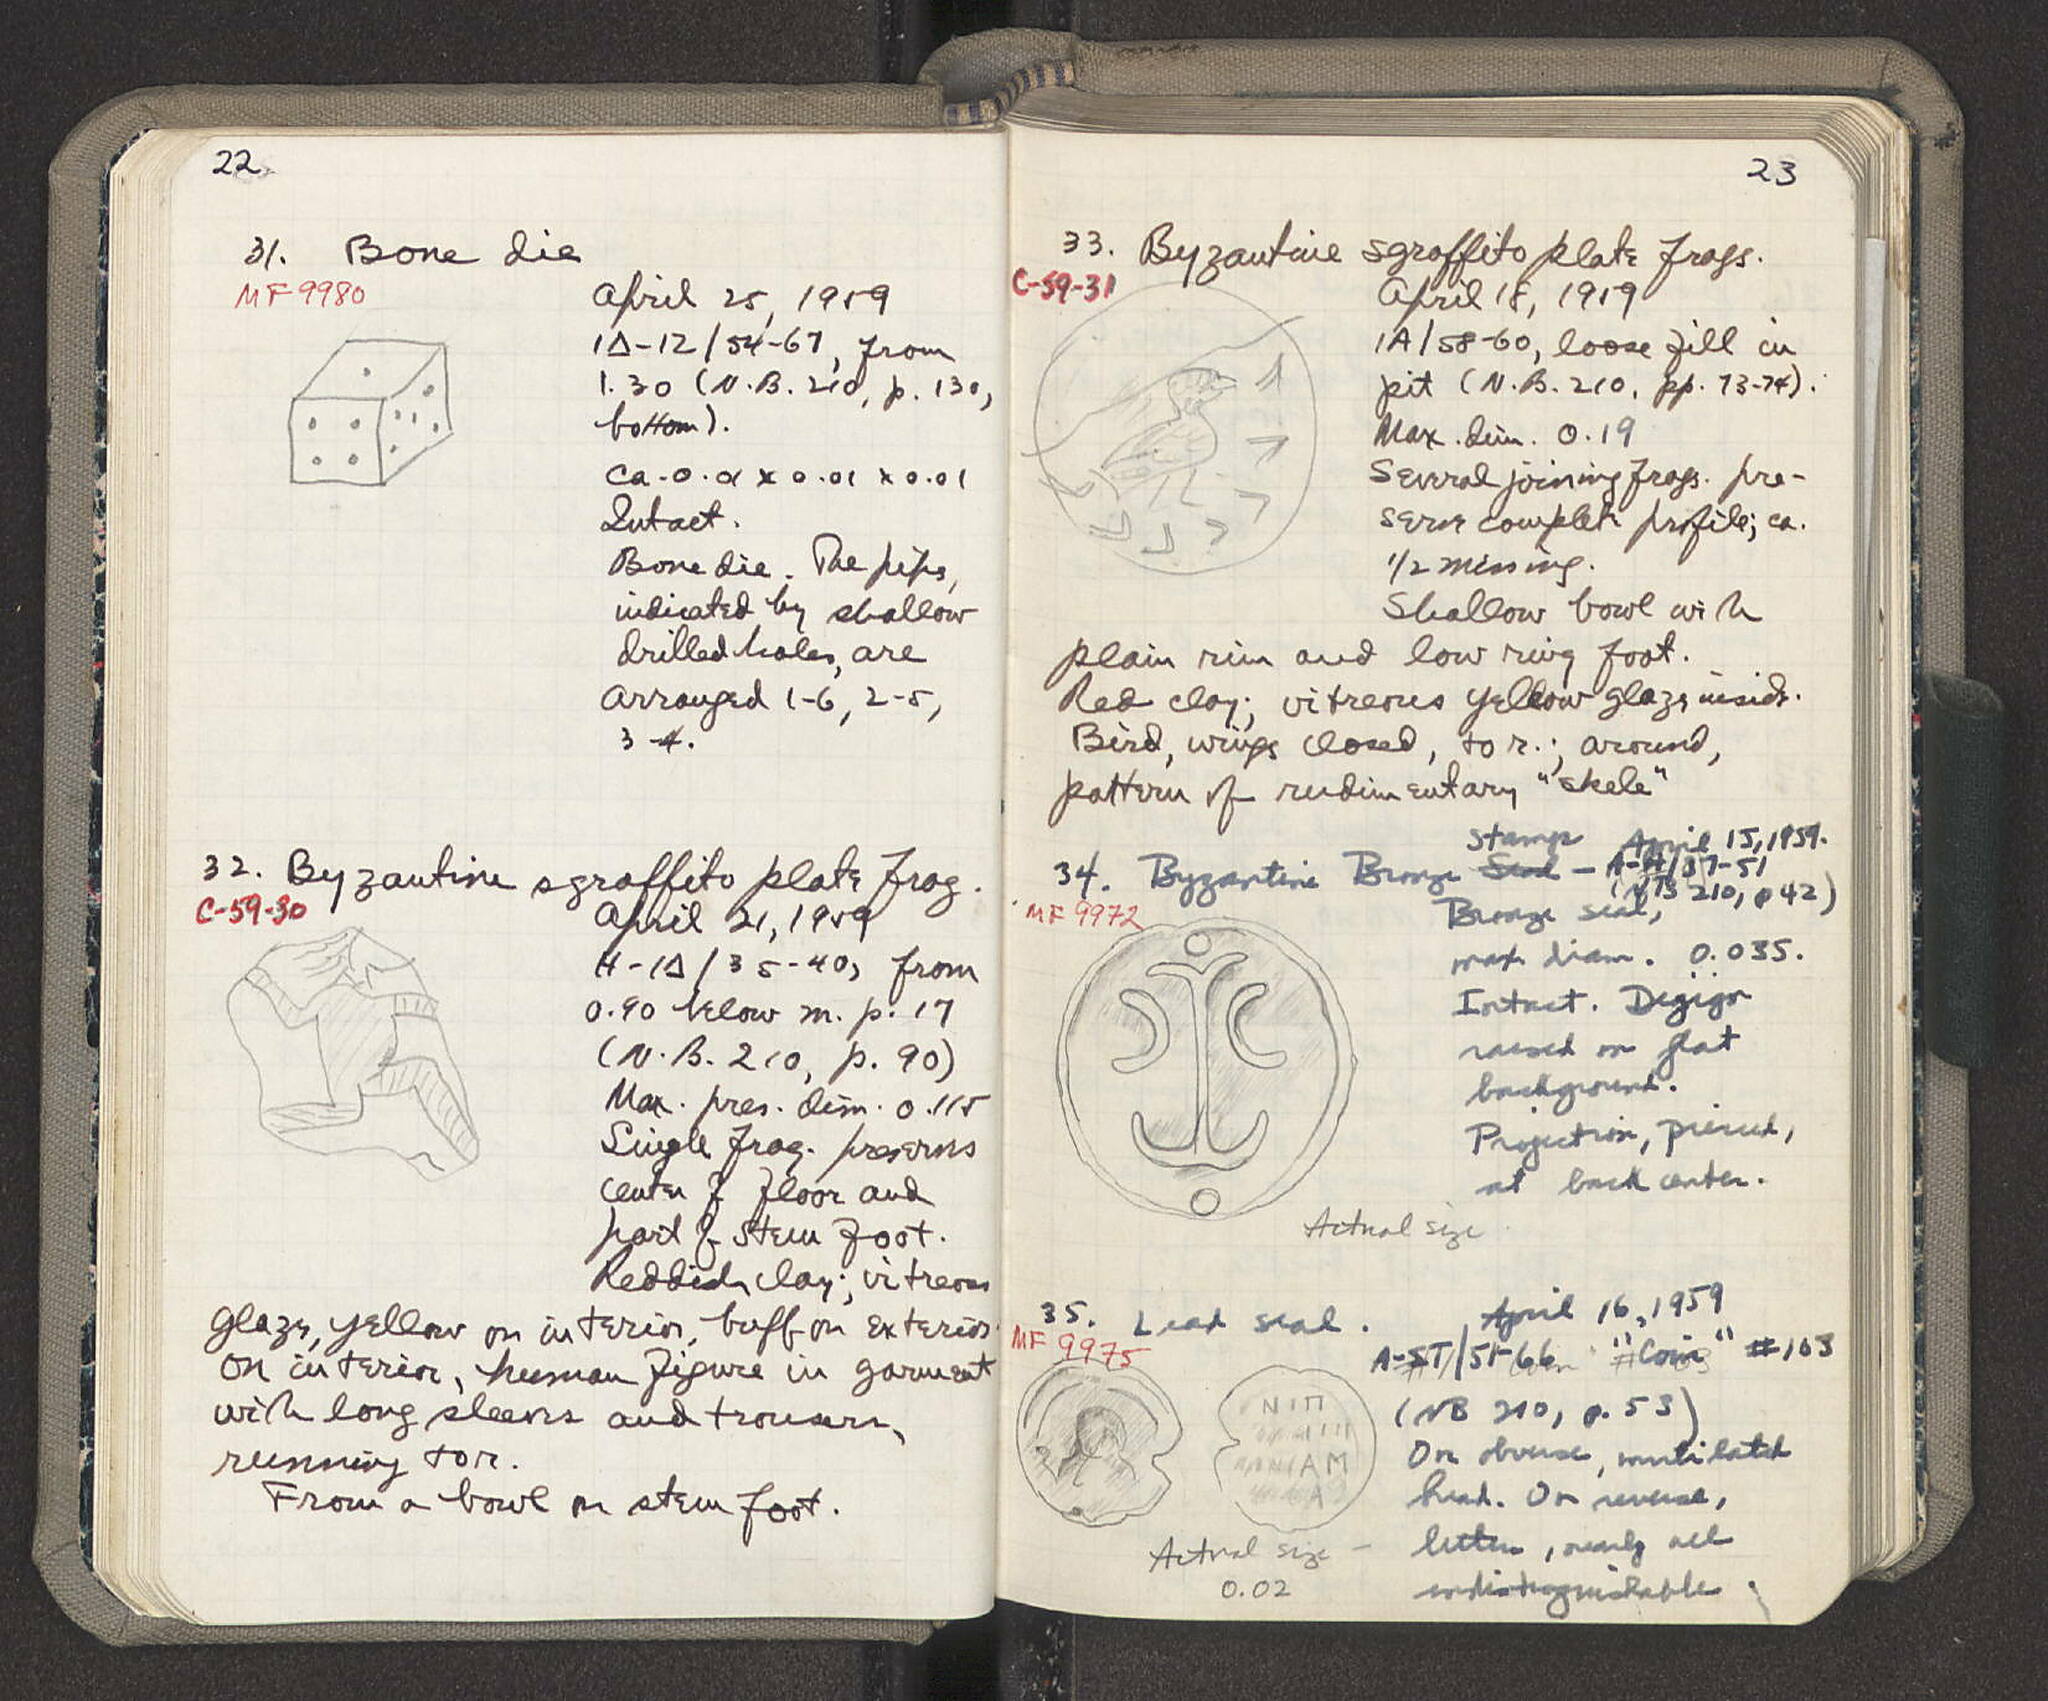 22
31. Bone die
MF 9980
April 25, 1959
1Δ-12/54-67, from
1.30 (N.B. 210, p. 130,
bottom).
Ca. 0.01 x 0.01 x 0.01
Intact.
Bone die. The pips,
indicated by shallow
drilled holes, are
arranged 1-6, 2-5,
3-4.
32. Byzantine sgraffito plate frag.
C-59-30
April 21, 1959
H-1Δ/35-40, from
0.90 below m. p. 17
(N.B. 210, p. 90)
Max. pres. dim. 0.115
Single frag. preserves
center of floor and
part of stem foot.
Reddish clay; vitreous
glaze, yellow on interior, buff on exterior.
On interior, human figure in garment
with long sleeves and trousers,
running to r.
From a bowl on stem foot.
23
33. Byzantine sgraffito plate frags.
C-59-31
April 18, 1959
1A/58-60, loose fill in
pit (N.B. 210, pp. 73-74).
Max. dim. 0.19
Several joining frags. pre-
serve complete profile; ca.
1/2 missing.
Shallow bowl with
plain rim and low ring foot.
Red clay; vitreous yellow glaze inside.
Bird, wings closed, to r.; around,
pattern of rudimentary "skele"
Stamp April 15, 1959.
34. Byzantine Bronze Seal - A-H/37-51
(NB 210, p 42)
MF 9972
Bronze seal,
max diam. 0.035.
Intact. Design
raised on flat
background.
Projection, pierced,
at back center.
Actual size
35. Lead seal. April 16, 1959
MF 9975
"Coin" #103
(NB 210, p. 53)
On obverse, mutilated
head. On reverse,
letters, nearly all
indistinguishable.
N I Π
A M
A
Actual size -
0.02